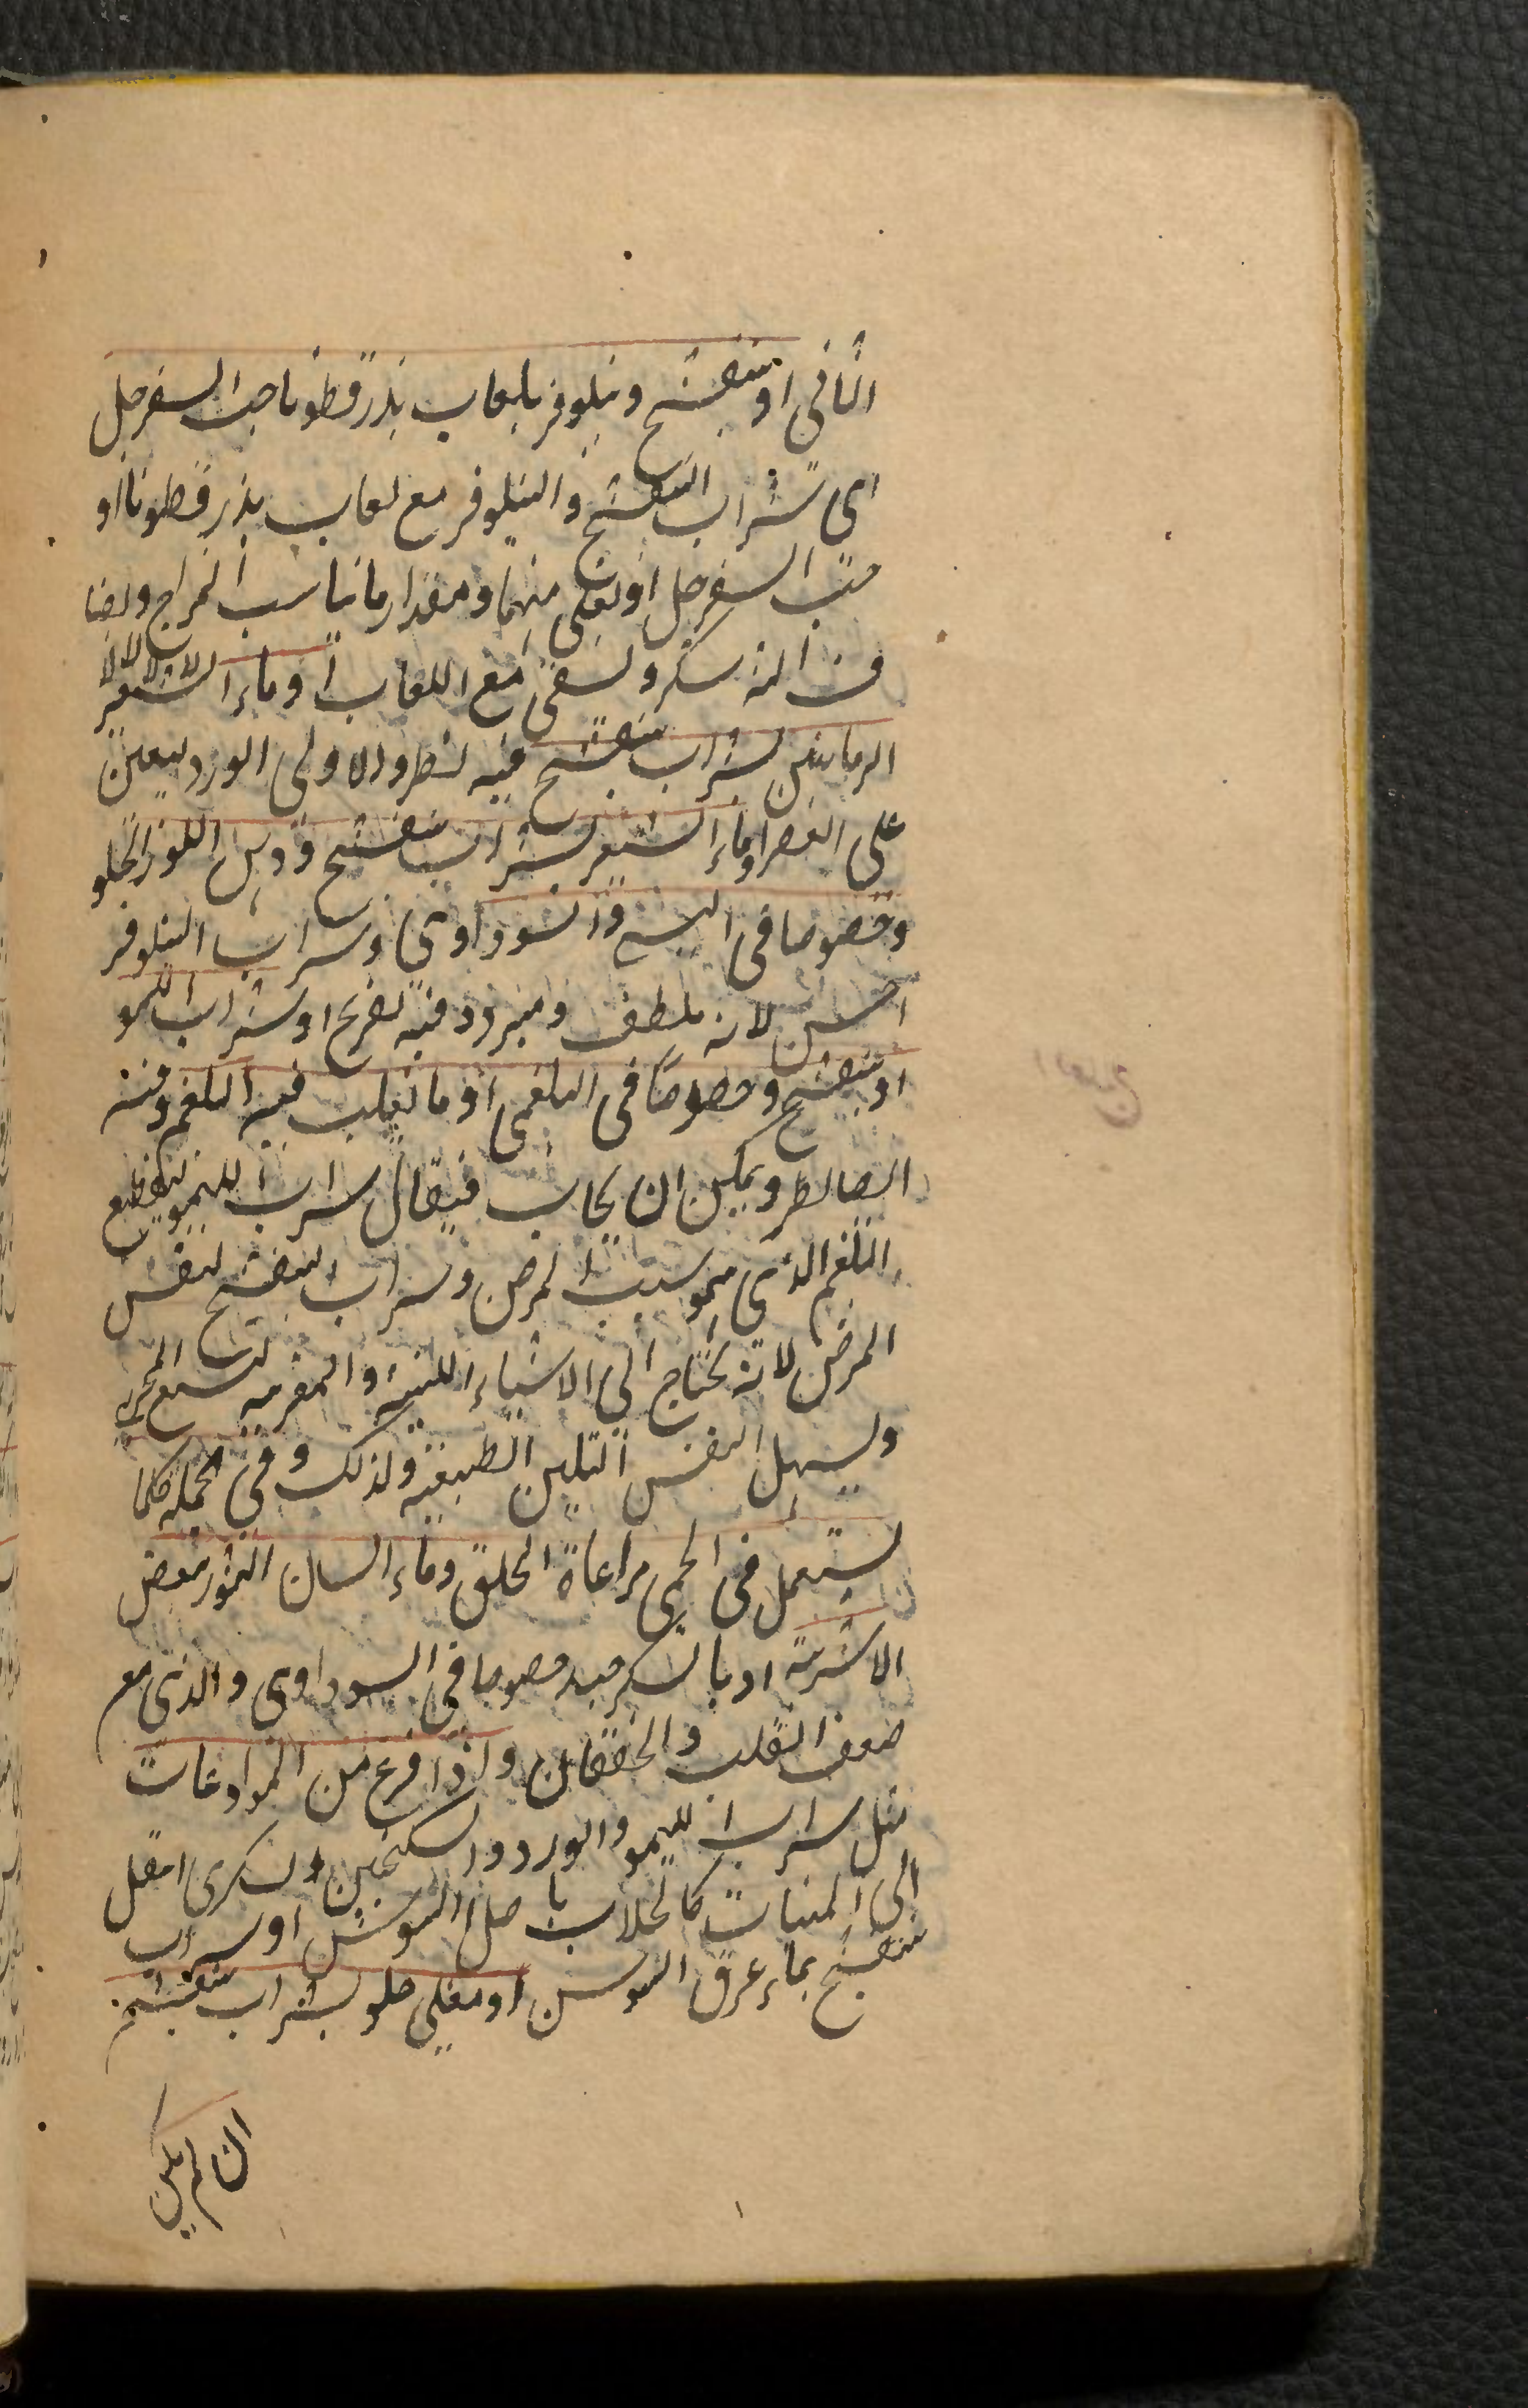 الثافى او بنفشج ونيلوفر بلعاب بذرقطونا حب السفرجل
اى شراب البنفشج والنيلوفر مع لعاب بذرقطونا او
حب السفرجل او لعابى منهما ومقدار ما يناسب المزاج وايضا
سكر ولسقى مع اللعاب او ماء الشعير
الرمانين بشراب بنفشج فيه نظر والاولى الورد ليعين
على العصر او ماء الشعير بشراب بنفشج ودهن اللوز الحلو
وخصوصا فى اليبس والسوداوى وشراب النيلوفر
احسن لانه ملطف ومبرد وفيه تفريح او شراب الليمو
او بنفشج وخصوصا فى البلغمى او ما يغلب فيه البلغم وفيه
ايضا نظر ويمكن ان يجاب فيقال شراب الليمو لتقطيع
البلغم الذى هو سبب المرض وشراب البنفشج لنفس
المرض لانه يحتاج الى الاشياء اللينة والمغرية ليتسع المجرى
ويسهل النفس التليين الطبيعة ولذلك وفى الجملة كلما
يستعمل فى الحمى مراعاة الحلق وماء لسان الثور ببعض
الاشربة او بالسكر جيد خصوصا فى السوداوى والذى مع
ضعف القلب والخفقان واذا فرغ من الرادعات
مثل شراب الليمو والورد والسكنجبين السكرى انتقل
الى الملينات كالجلاب باصل السوس او شراب
بنفشج بماء عرق السوس او مغلى حلو بشراب بنفشج
ان لم يكن